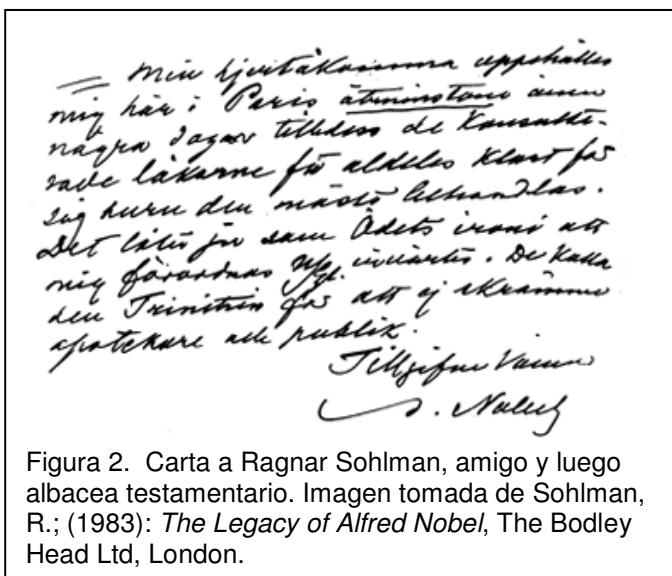 — Min hjertåkomma uppehålles
mig här i Paris åtminstone ännu
några dagar tilldess de konsulte-
rade läkarne få aldeles klart för
sig huru den måste behandlas.
Det låter ju som Ödets ironi att
mig förordnas Ngl. invärtes. De kalla
den Trinitrin för att ej skrämma
apotekare och publik.
Tillgifne Vännen
A. Nobel
Figura 2. Carta a Ragnar Sohlman, amigo y luego
albacea testamentario. Imagen tomada de Sohlman,
R.; (1983): The Legacy of Alfred Nobel, The Bodley
Head Ltd, London.